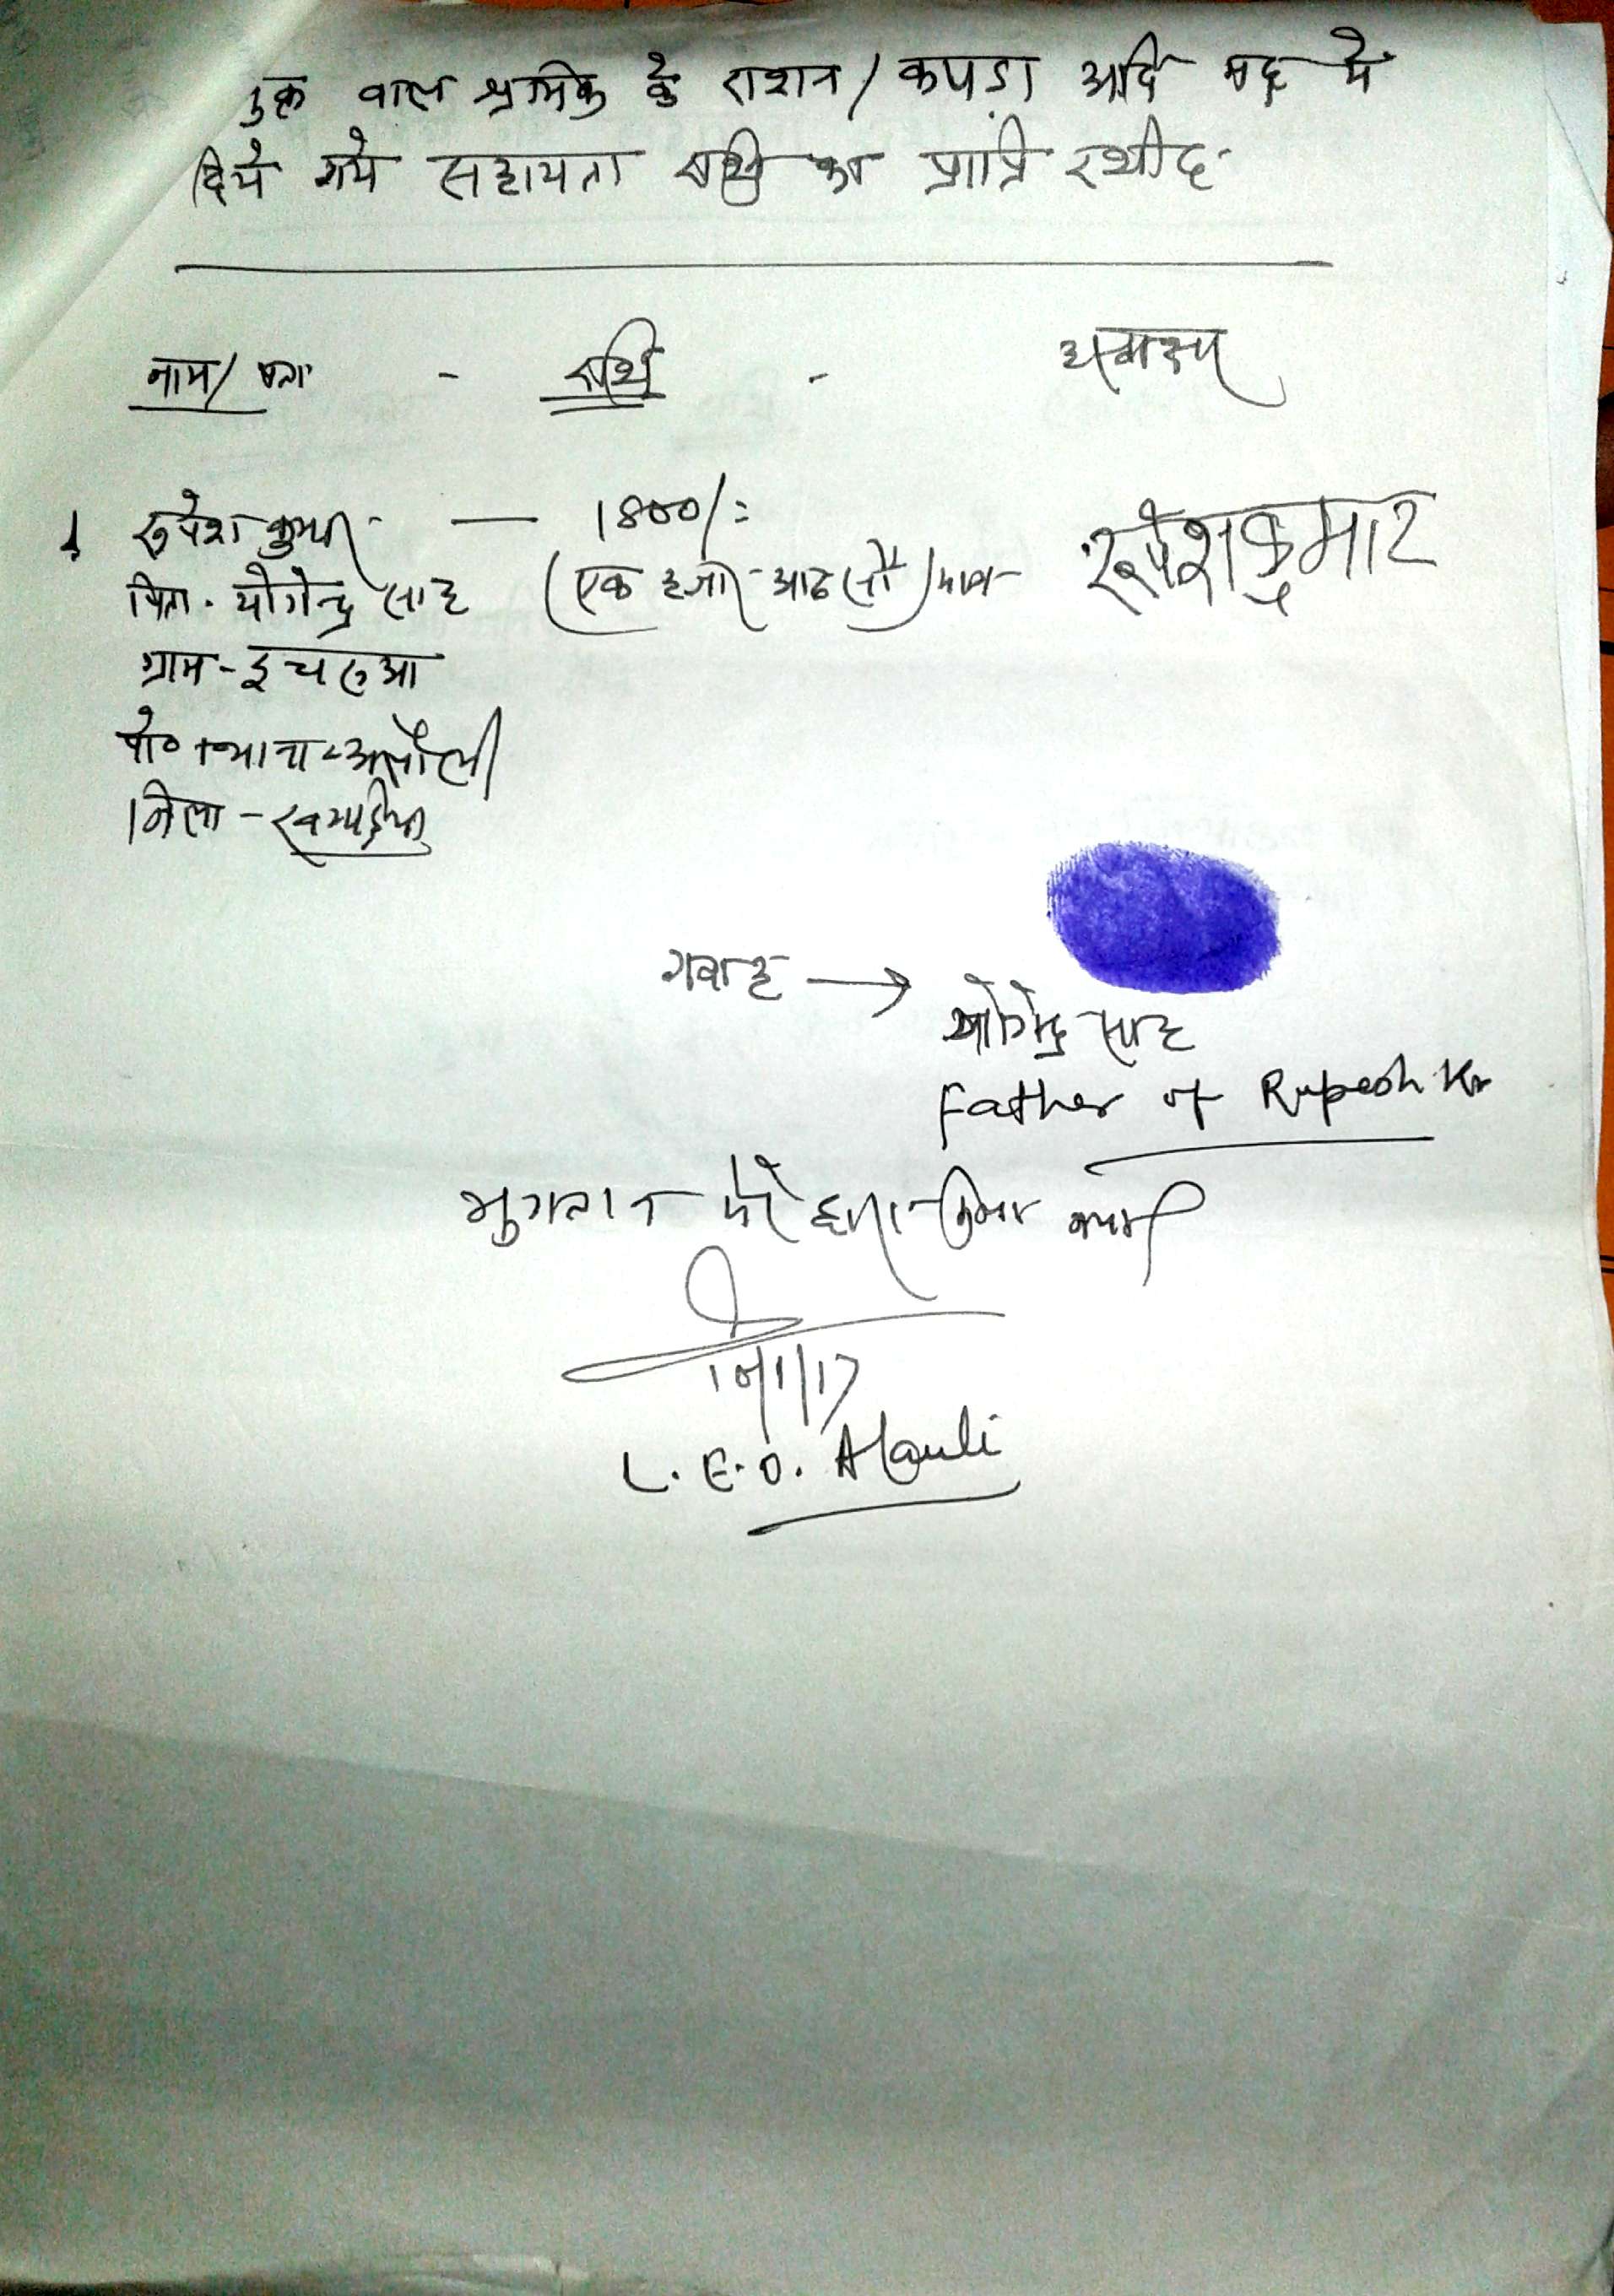 मुक्त बाल श्रमिक के राशन/कपड़ा आदि मद में
दिये गये सहायता राशि का प्राप्ति रसीद
नाम/पता - राशि - हस्ताक्षर
1. रुपेश कुमार — 1800/= रूपेश कुमार
पिता - योगेन्द्र साह (एक हजार आठ सौ) मात्र
ग्राम - इचरुआ
पो० + थाना - अलौली
जिला - खगड़िया
गवाह → योगेन्द्र साह
Father of Rupesh Kr
भुगतान मेरे द्वारा किया गया
10/1/17
L.E.O. Alauli